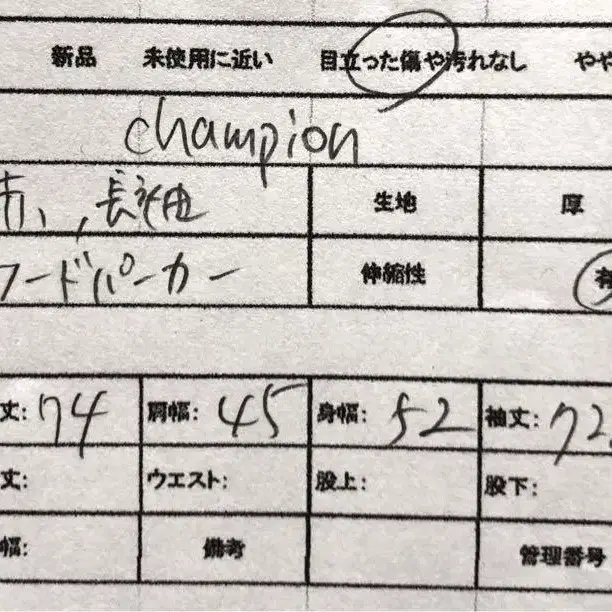 新品 未使用に近い 目立った傷や汚れなし やや
champion
長袖 生地 厚
フードパーカー 伸縮性 有
丈: 74 肩幅: 45 身幅: 52 袖丈: 72
丈: ウエスト: 股上: 股下:
幅: 備考 管理番号